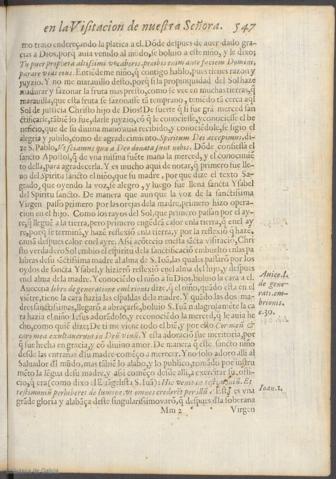 en la Visitacion de nuestra Señora. 547
mo trato endereçando la platica a el. Dõde despues de auer dado gra-
cias a Dios, porq̃ auia venido al mũdo, se boluio a este niño, y le dixo:
Tu puer propheta altissimi vocaberis, præibis enim ante faciem Domini,
parare vias eius. Entiẽdeme niño, q̃ contigo hablo, pues tienes razon y
juyzio. Y no me marauillo desto, porq̃ si la propinquidad del Sol haze
madurar y sazonar la fruta mas presto, como se vee en muchas tierras, q̃
marauilla, que esta fruta se sazonasse tã temprano, teniẽdo tã cerca aq̃l
Sol de justicia Christo hijo de Dios? De suerte q̃ si fue grã merced san
ctificarle, tãbiẽ lo fue, darle juyzio, cõ q̃ le conociesse, y conociesse el be
neficio, que de su diuina mano auia recibido, y conociẽdole, se sigio el
alegria y jubilo, como de agradecimiento. Spiritum Dei accepimus, di-
ze S. Pablo, Vt sciamus quæ a Deo donata sunt nobis. Dõde confiessa el
sancto Apostol, q̃ de vna misma fuẽte mana la merced, y el conocimiẽ
to della, para agradecerla. Y es mucho aqui de notar, q̃ primero fue lle
no del Spiritu sancto el niño, que su madre, por que dize el texto Sa-
grado, que oyendo la voz, se alegro, y luego fue llena sancta Ysabel
del Spiritu sancto. De manera que aunque la voz de la sanctissima
Virgen passo primero por las orejas de la madre, primero hizo opera-
tion en el hijo. Como los rayos del Sol, que primero passan por el ay-
re, q̃ lleguẽ a la tierra, pero primero engẽdra calor en la tierra, q̃ en el ay
re, porq̃ le terminã, y haze reflexiõ en la tierra, y por la reflexiõ q̃ haze,
causa despues calor en el ayre. Assi acõtecio en esta sãcta visitaciõ, Chri
sto verdadero Sol embio el spiritu de la sanctificaciõ embuelto en las pa
labras desu sãctissima madre al alma de S. Iuã, las quales passarõ por los
oydos de sancta Ysabel, y hizierõ reflexiõ en el alma del hijo, y despues
en el alma de la madre. Y conociẽdo el niño a su Dios, boluio la cara a el.
Auicena libro de generatione embrionis dize, q̃ el niño, quãdo esta en el
viẽtre, tiene la cara hazia las espaldas de la madre. Y quãdo las dos ma-
dres sanctissimas, llegarõ a abraçarse, boluio S. Iuã milagrosamẽte la ca
ra hazia el niño Iesus adorãdole, y reconociẽdo la merced, q̃ le auia he
cho, como quiẽ dize, De ti me viene todo el biẽ, y por esso Cor meũ &
caro mea exultauerunt in Deũ viuũ. Y esta adoració fue meritoria, por
q̃ fue hecha en gracia, y cõ diuino amor. De manera q̃ este sancto niño
desde las entrañas dsu madre começo a merecer. Y no solo adoro alli al
Saluador dl mũdo, mas tãbiẽ lo alabo, y lo publico, tomãdo por instru
mẽto la lẽgua desu madre, y assi começo desde alli, a exercitar su offi-
cio, q̃ era (como dixo el Euãgelista S. Iuã): Hic venit in testimoniũ. Et
testimoniũ perhiberet de lumine, vt omnes crederẽt per illũ. Esta es vna
grãde gloria y alabãça deste singularissimo varõ, q̃ despues dla soberana
Mm 2 Virgen
Auice. l.
de gene-
rati. em-
brionis.
c. 30.
Ioan. 1.